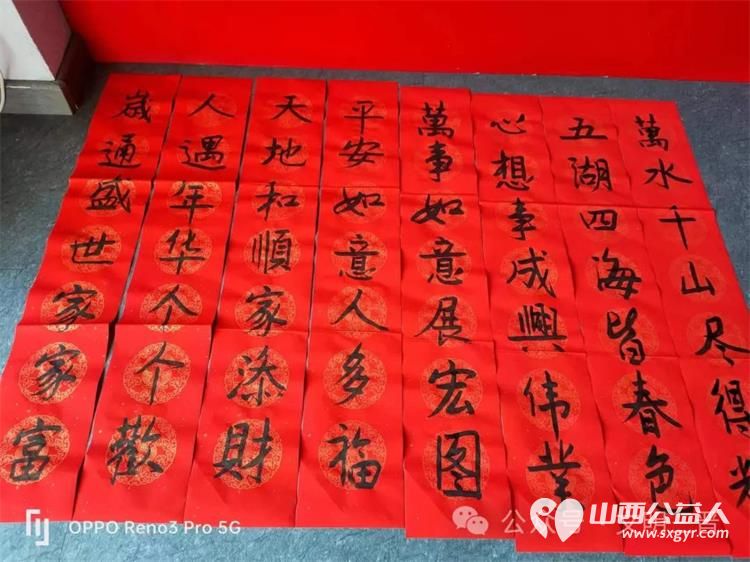 萬水千山尽得
五湖四海皆春色
心想事成興伟業
萬事如意展宏图
平安如意人多福
天地和順家添財
人遇年华个个歡
歲通盛世家家富
OPPO Reno3 Pro 5G
公众号
山西公益人
www.sxgyr.com